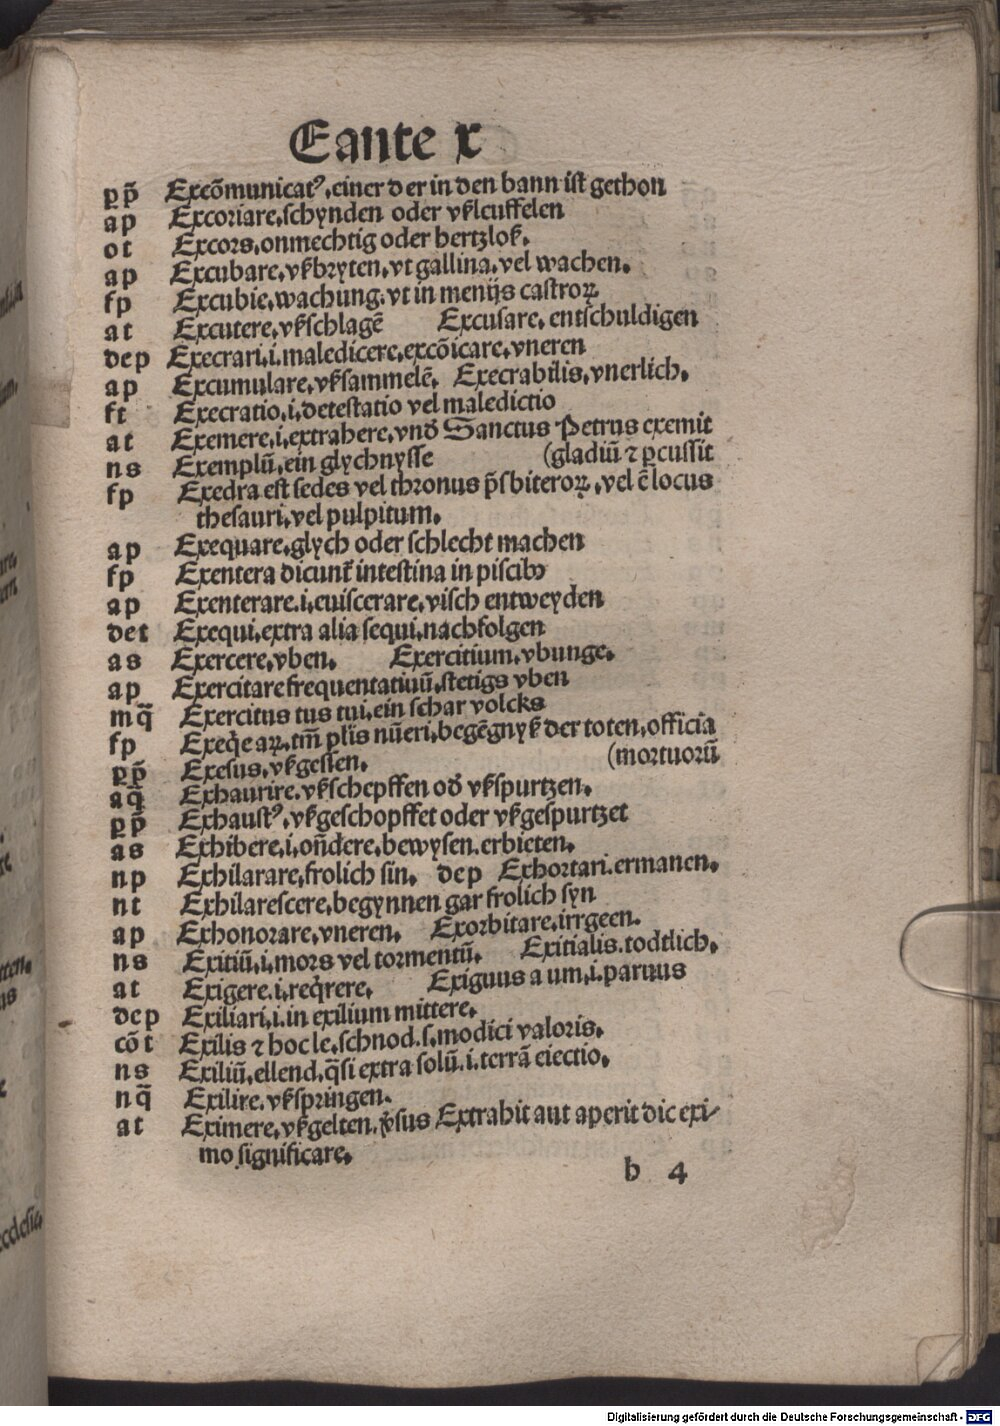 E ante x
ꝑp̃ Excõmunicatꝰ, einer der in den bann ist gethon
ap Excoriare, schynden oder vßlcuffelen
ot Excors, onmechtig oder hertzloß.
ap Excubare, vßbryten, vt gallina, vel wachen.
fp Excubie, wachung, vt in menijs castroꝝ
at Excutere, vßschlagẽ Excusare, entschuldigen
dep Execrari, i. maledicere, excõicare, vneren
ap Excumulare, vßsammelẽ, Execrabilis, vnerlich.
ft Execratio, i, detestatio vel maledictio
at Exemere, i, extrahere, vnđ Sanctus Petrus exemit
ns Exemplũ, ein glychnysse (gladiũ ⁊ ꝑcussit
fp Exedra est sedes vel thronus p̃sbiteroꝝ, vel ẽ locus
thesauri, vel pulpitum.
ap Exequare, glych oder schlecht machen
fp Exentera dicunt᷑ intestina in piscibꝰ
ap Exenterare. i, euiscerare, visch entweyden
det Exequi, extra alia sequi, nachfolgen
as Exercere, vben. Exercitium, vbunge.
ap Exercitare frequentatiuũ, stetigs vben
mq̃ Exercitus tus tui, ein schar volcks
fp Exeq̃e aꝝ, tm̃ ꝑlis nũeri, begẽgnyß der toten, officia
ꝑp̃ Exesus, vßgessen. (mortuorũ
aq̃ Exhaurire, vßschepffen ođ vßspurtzen.
ꝑp̃ Exhaustꝰ, vßgeschopffet oder vßgespurtzet
as Exhibere, i, oñdere, bewysen, erbieten.
np Exhilarare, frolich sin. dep Exhortari. ermanen.
nt Exhilarescere, begynnen gar frolich syn
ap Exhonorare, vneren. Exorbitare, irrgeen.
ns Exitiũ, i, mors vel tormentũ. Exitialis. todtlich.
at Exigere. i, req̃rere. Exiguus a um, i. paruus
dep Exiliari, i. in exilium mittere.
cõt Exilis ⁊ hoc le, schnod. s, modici valoris.
ns Exiliũ, ellend, q̃si extra solũ. i. terrã eiectio.
nq̃ Exilire, vßspringen.
at Eximere, vßgelten. ꝟsus Extrahit aut aperit dic exi⸗
mo significare.
b 4
Digitalisierung gefördert durch die Deutsche Forschungsgemeinschaft - DFG